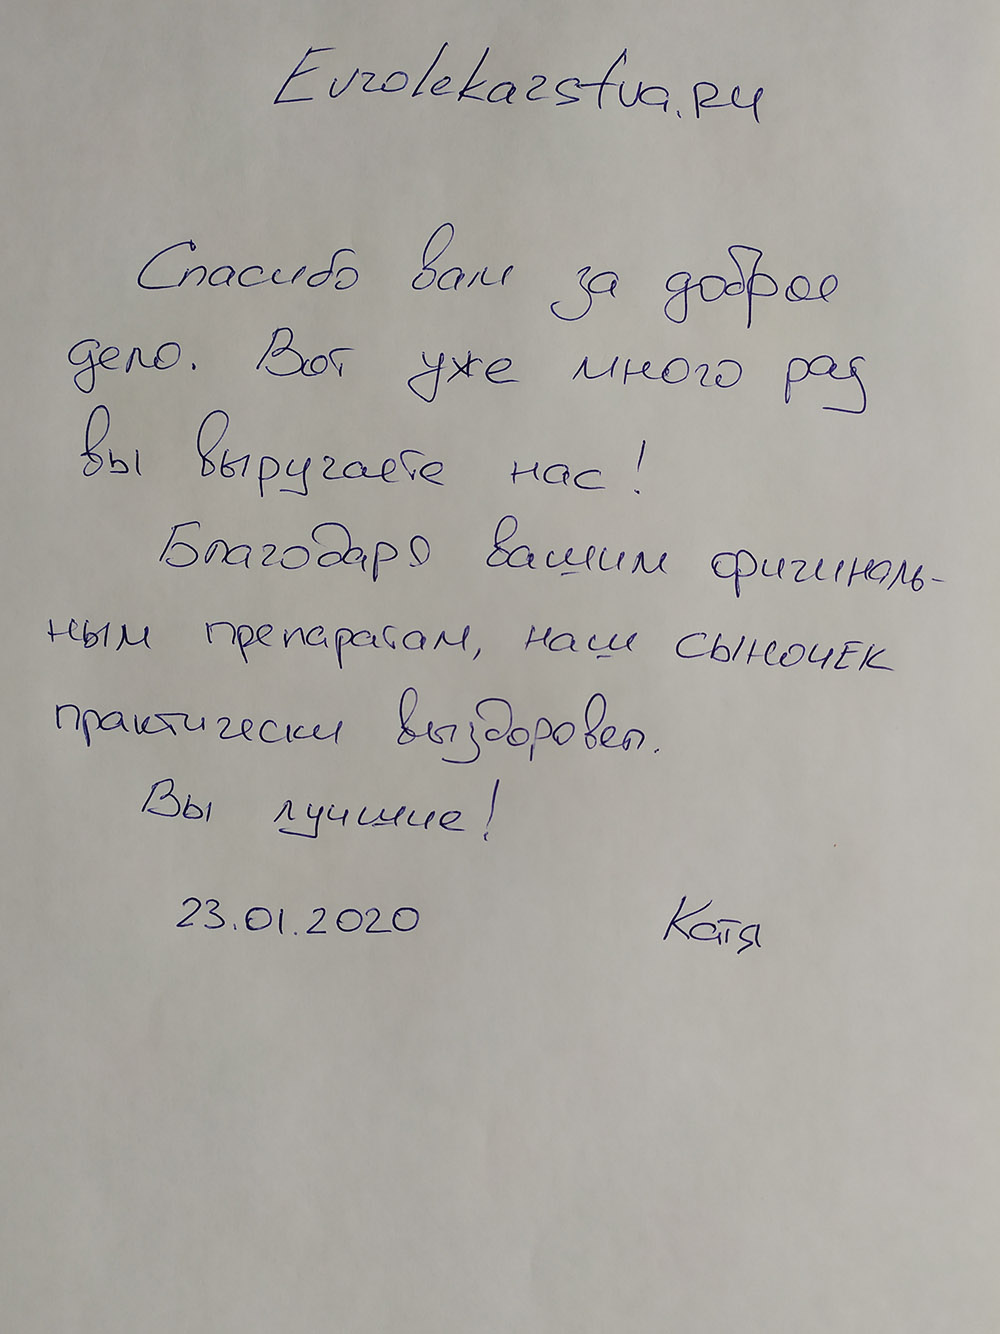 Evrolekarstva.ру
Спасибо вам за доброе
дело. Вот уже много раз
вы выручаете нас!
Благодаря вашим оригиналь-
ным препаратам, наш сыночек
практически выздоровел.
Вы лучшие!
23.01.2020 Катя